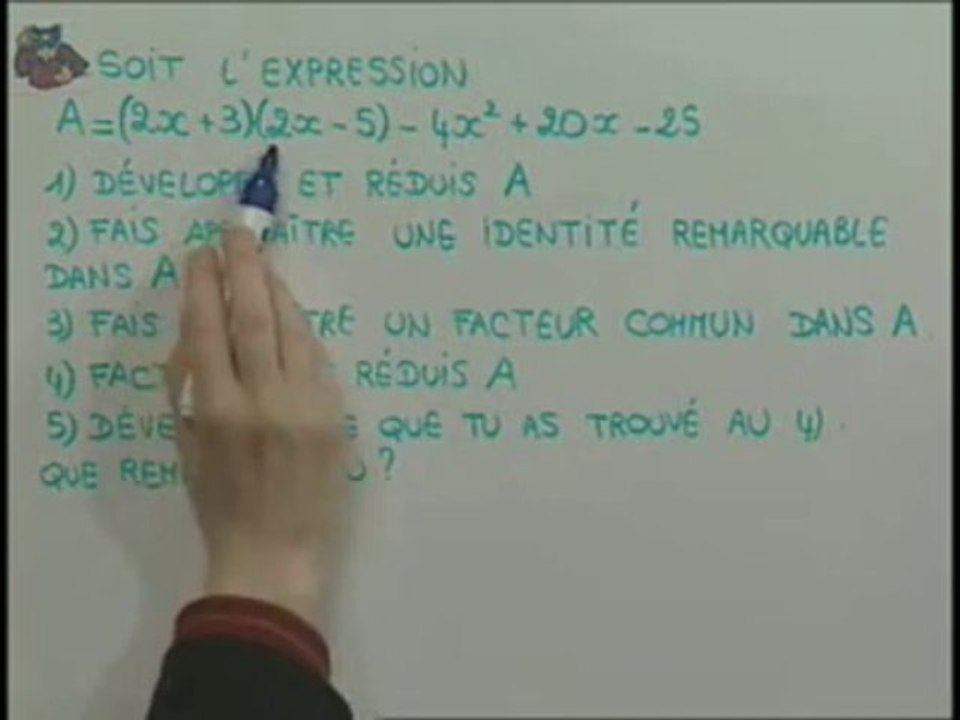 SOIT L'EXPRESSION
A=(2x+3)(2x-5)-4x²+20x-25
1) DÉVELOPE ET RÉDUIS A
2) FAIS UNE IDENTITÉ REMARQUABLE
DANS A
3) FAIS UN FACTEUR COMMUN DANS A
4) RÉDUIS A
5) QUE TU AS TROUVÉ AU 4).
QUE ?